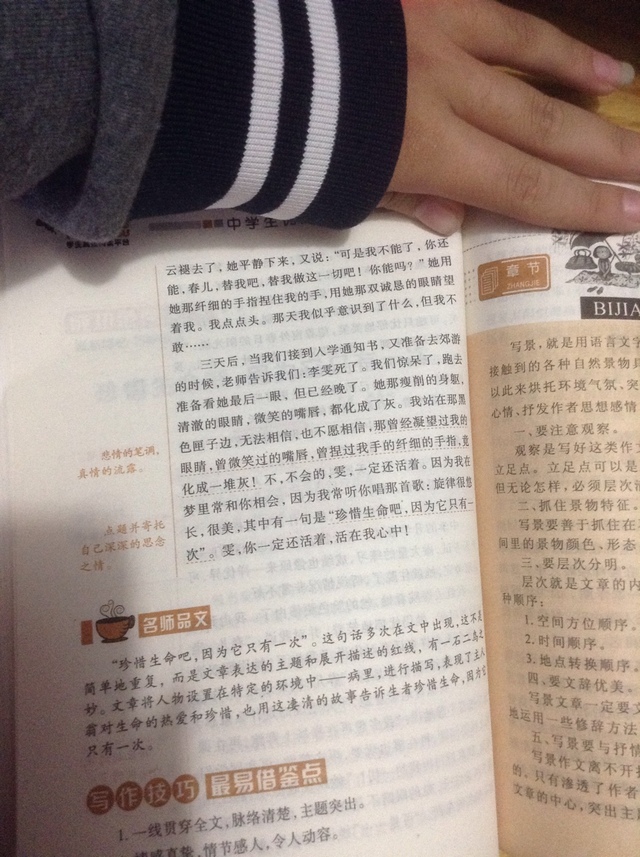 中学生
云褪去了，她平静下来，又说：“可是我不能了，你还
能，春儿，替我吧，替我做这一切吧！你能吗？”她用
她那纤细的手指捏住我的手，用她那双诚恳的眼睛望
着我。我点点头。那天我似乎意识到了什么，但我不
敢……
三天后，当我们接到入学通知书，又准备去郊游
的时候，老师告诉我们：李雯死了。我们惊呆了，跑去
准备看她最后一眼，但已经晚了。她那瘦削的身躯，
清澈的眼睛，微笑的嘴唇，都化成了灰。我站在那黑
色匣子边，无法相信，也不愿相信，那曾经凝望过我的
眼睛，曾微笑过的嘴唇，曾捏过我手的纤细的手指，竟
化成一堆灰！不，不会的，雯，一定还活着。因为我在
梦里常和你相会，因为我常听你唱那首歌：旋律很悠
长，很美，其中有一句是“珍惜生命吧，因为它只有一
次”。雯，你一定还活着，活在我心中！
悲情的笔调，
真情的流露。
点题并寄托
自己深深的思念
之情。
名师品文
“珍惜生命吧，因为它只有一次”。这句话多次在文中出现，这不是
简单地重复，而是文章表达的主题和展开描述的红线，有一石二鸟之
妙。文章将人物设置在特定的环境中——病里，进行描写，表现了主人
翁对生命的热爱和珍惜，也用这凄清的故事告诉生者珍惜生命，因为它
只有一次。
写作技巧 最易借鉴点
1.一线贯穿全文，脉络清楚，主题突出。
情感真挚，情节感人，令人动容。
章节
ZHANGJIE
BIJIA
写景，就是用语言文字
接触到的各种自然景物具
以此来烘托环境气氛，突
心情、抒发作者思想感情
一、要注意观察。
观察是写好这类作文
立足点。立足点可以是
但无论怎样，必须层次清
二、抓住景物特征。
写景要善于抓住在
间里的景物颜色、形态
三、要层次分明。
层次就是文章的内
种顺序：
1.空间方位顺序。
2.时间顺序。
3.地点转换顺序。
四、要文辞优美。
写景文章一定要文
地运用一些修辞方法
五、写景要与抒情
写景作文离不开
的、只有渗透了作者
文章的中心，突出主